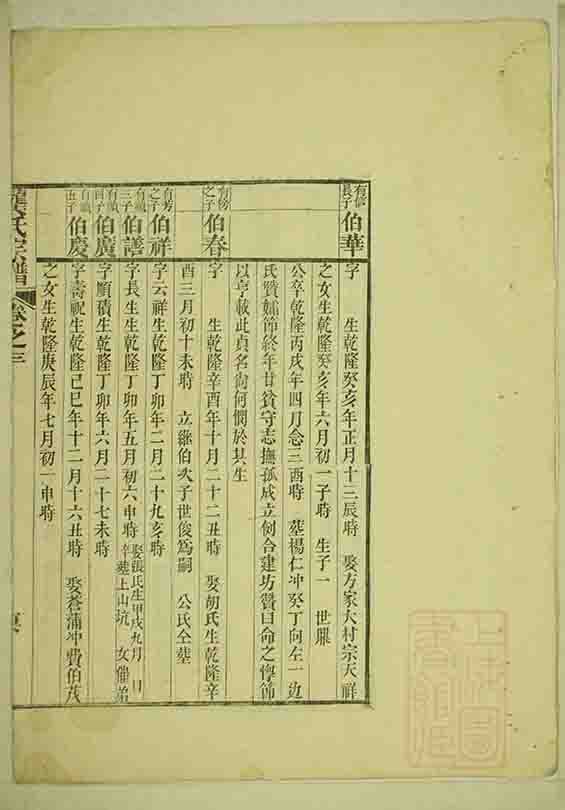 有信長子 伯華
字 生乾隆癸亥年正月十三辰時 娶方家大村宗天祥
之女生乾隆癸亥年六月初一子時 生子一 世
公卒乾隆丙戌年四月念三酉時 塟楊仁冲癸丁向左一边
氏贊孀節終年甘貧守志撫孤成立例合建坊贊曰命之悖節
以亨載此貞名尚何憫於其生
有傍之子 伯春
字 生乾隆辛酉年十月二十二丑時 娶胡氏生乾隆辛
酉三月初十未時 立繼伯次子世俊為嗣 公氏仝塟
之子 伯祥
字云祥生乾隆丁卯年二月二十九亥時
三子 伯譱
字長生生乾隆丁卯年五月初六申時 娶張氏生甲戌九月 日
卒塟上山坑 女
四子 伯廣
字順積生乾隆丁卯年六月二十七未時
五子 伯慶
字壽祝生乾隆己巳年十二月十六丑時 娶蒼蒲冲費伯茂
之女生乾隆庚辰年七月初一申時
龔氏宗譜 卷之三